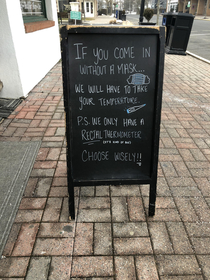 IF YOU COME IN
WITHOUT A MASK...
WE WILL HAVE TO TAKE
YOUR TEMPERATURE.
P.S. WE ONLY HAVE A
RECTAL THERMOMETER
CHOOSE WISELY!!